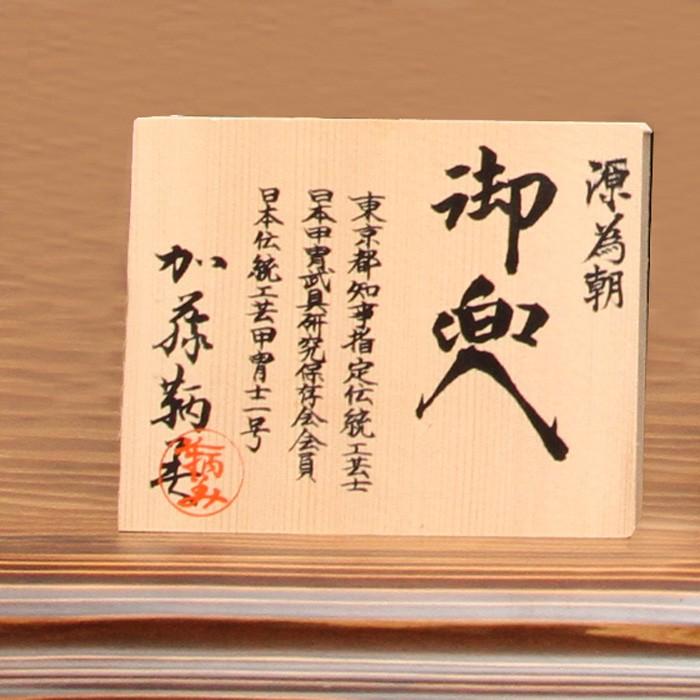 源為朝
御兜
東京都知事指定伝統工芸士
日本甲冑武具研究保存会会員
日本伝統工芸甲冑士一号
加藤鞆美
鞆美